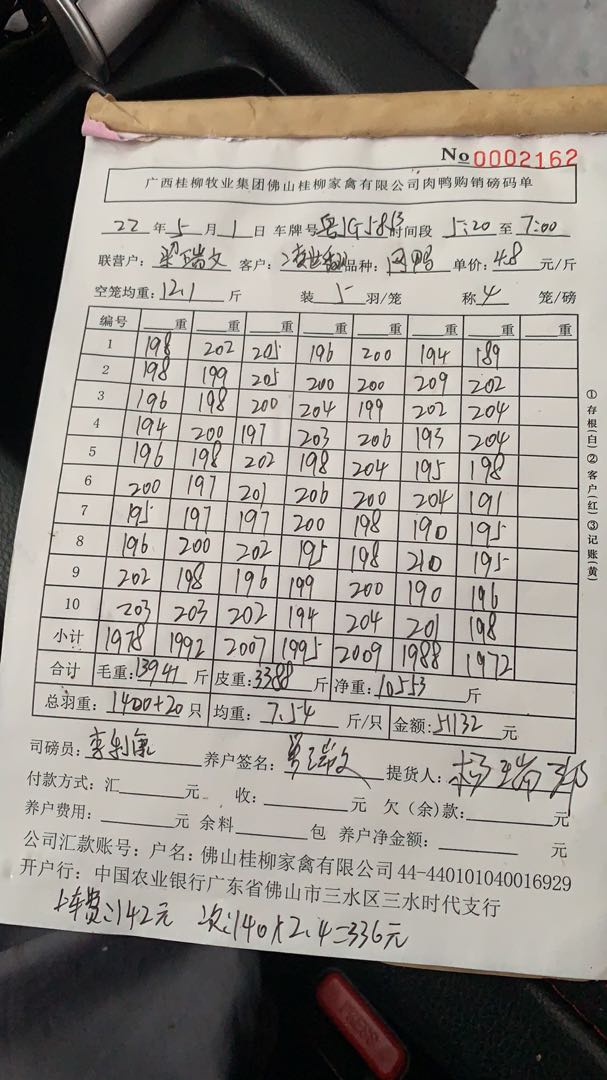 No 0002162
广西桂柳牧业集团佛山桂柳家禽有限公司肉鸭购销磅码单
22 年 5 月 1 日 车牌号 时间段 5:20 至 7:00
联营户: 客户: 品种: 单价: 4.8 元/斤
空笼均重: 12.1 斤 装 5 羽/笼 称 4 笼/磅
编号 重 重 重 重 重 重 重 重
1 198 202 205 196 200 194 189
2 198 199 205 200 200 209 202
3 196 198 200 204 199 202 204
4 194 200 197 203 206 193 204
5 196 198 202 198 204 195 198
6 200 197 201 206 200 204 191
7 195 197 197 200 198 190 195
8 196 200 202 195 198 210 195
9 202 198 196 199 200 190 196
10 203 203 202 194 204 201 198
小计 1978 1992 2007 1995 2009 1988 1972
合计 毛重: 13941 斤 皮重: 3388 斤 净重: 10553 斤
总羽重: 1400+20 只 均重: 7.54 斤/只 金额: 51132 元
司磅员: 养户签名: 提货人:
付款方式: 汇 元 收: 元 欠(余)款: 元
养户费用: 元 余料 包 养户净金额: 元
公司汇款账号: 户名: 佛山桂柳家禽有限公司 44-440101040016929
开户行: 中国农业银行广东省佛山市三水区三水时代支行
上车费:142元 :140×2.4=336元
①存根(白)②客户(红)③记账(黄)
PRESS